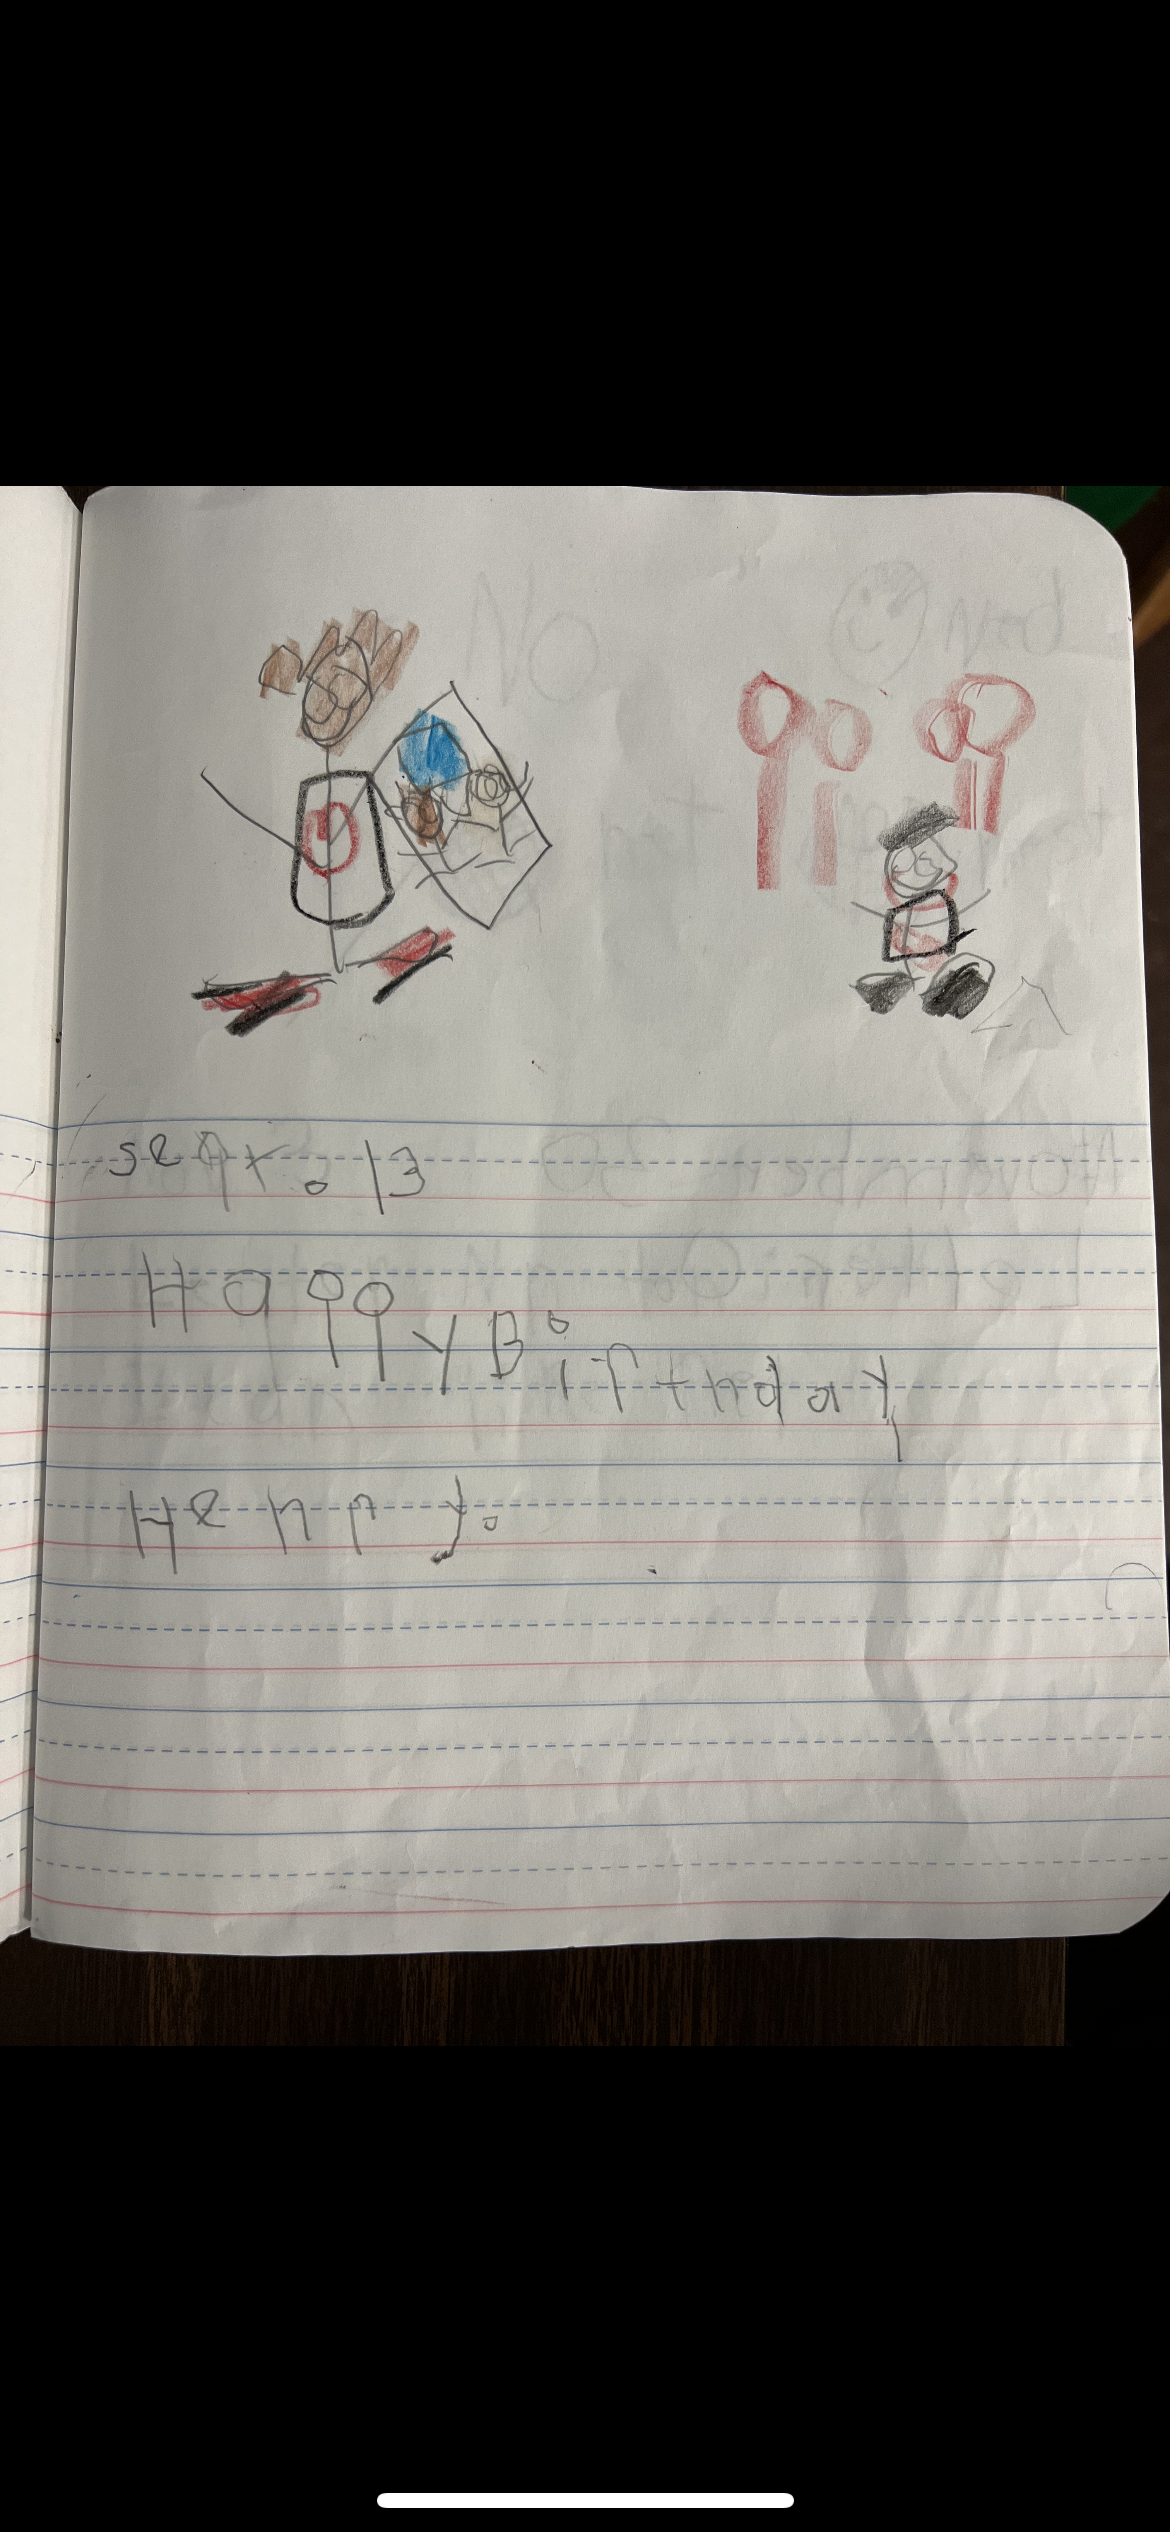 sept. 13
Happy Birthday
Henry.